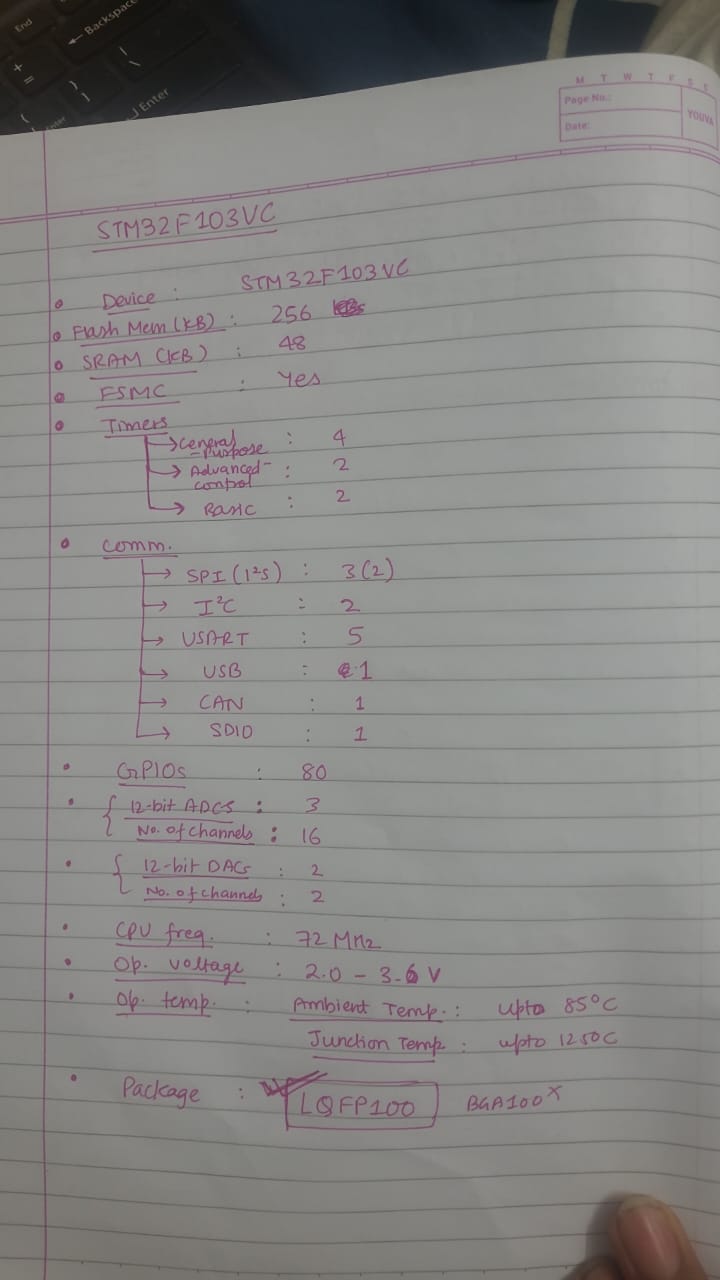 End
← Backspace
+
=
}
]
|
\
{
[
Enter
M T W T F S S
Page No.:
Date:
YOUVA
STM32F103VC
• Device : STM32F103VC
• Flash Mem (KB) : 256
• SRAM (KB) : 48
• FSMC : Yes
• Timers
→ General-Purpose : 4
→ Advanced-control : 2
→ Basic : 2
• Comm.
→ SPI (I²S) : 3(2)
→ I²C : 2
→ USART : 5
→ USB : 1
→ CAN : 1
→ SDIO : 1
• GPIOs : 80
• { 12-bit ADCs : 3
No. of channels : 16
• { 12-bit DACs : 2
No. of channels : 2
• CPU freq. : 72 MHz
• Op. voltage : 2.0 - 3.6 V
• Op. temp. : Ambient Temp. : upto 85°C
Junction Temp : upto 125°C
• Package : LQFP100 BGA100 x